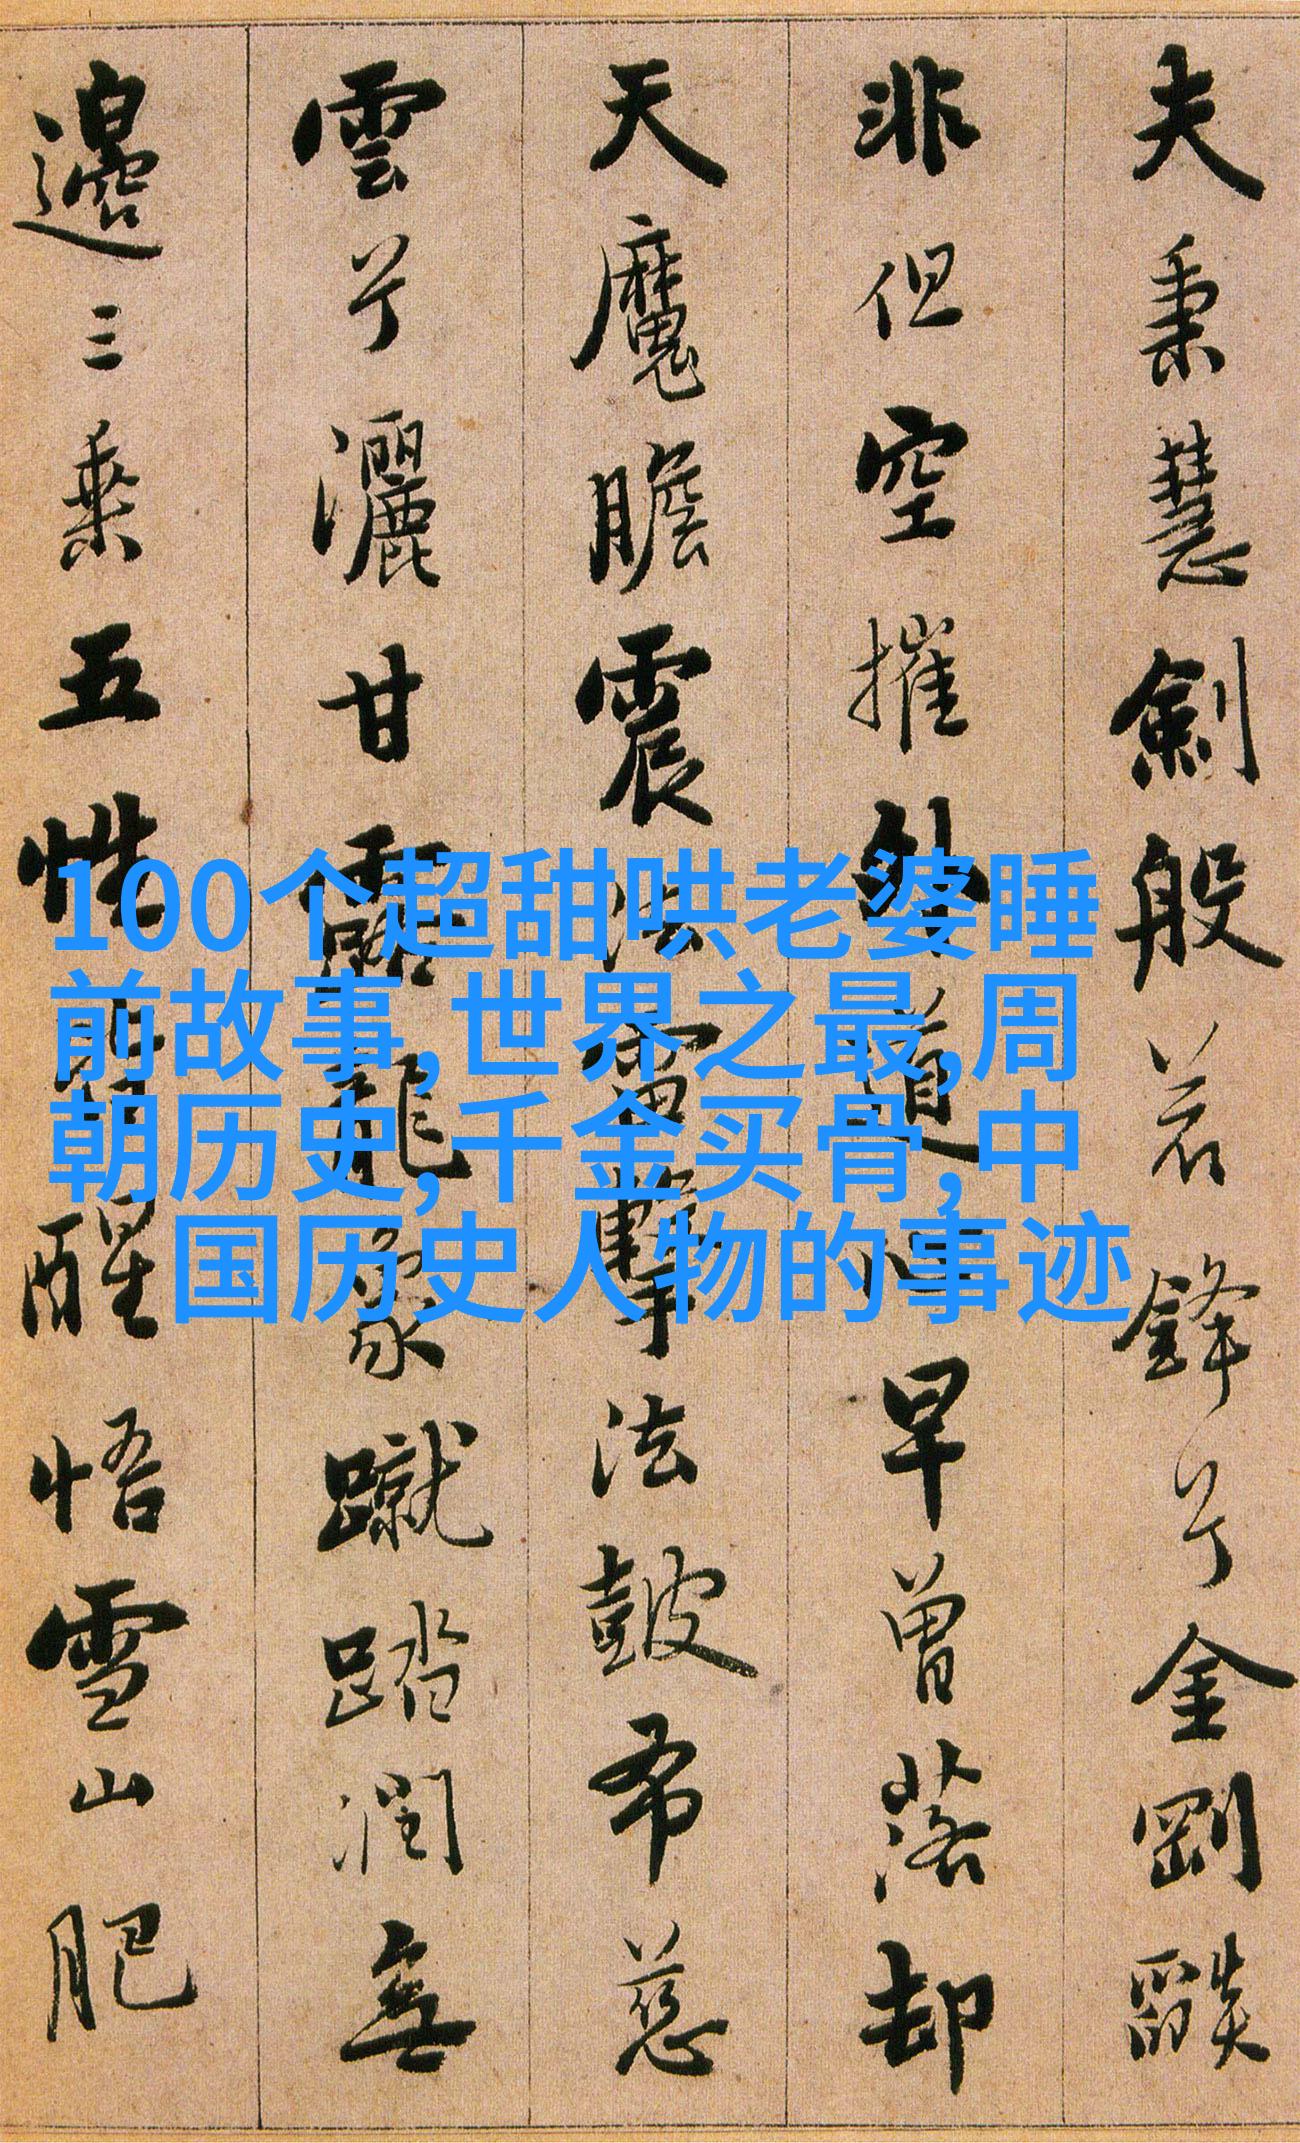 夫秉慧劍般若鋒兮金剛燄
非但空摧外道心早曾落却
天魔膽震法雷擊法皷布慈
雲兮灑甘露龍象蹴踏潤無
邊三乘五性皆醒悟雪山肥
100个超甜哄老婆睡
前故事,世界之最,周
朝历史,千金买骨,中
国历史人物的事迹